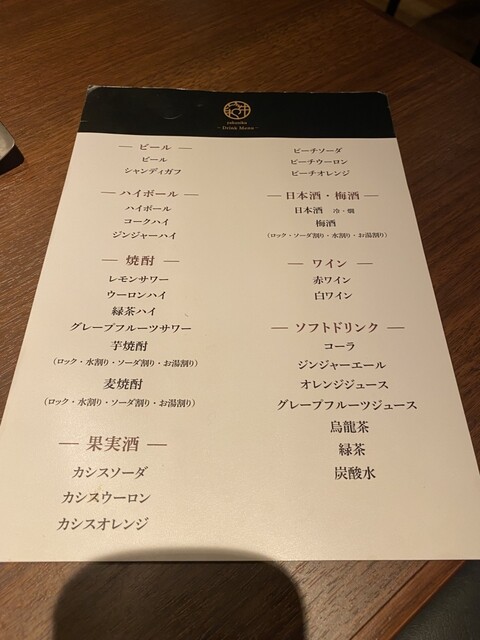 - Drink Menu -
ビール
ビール
シャンディガフ
ハイボール
ハイボール
コークハイ
ジンジャーハイ
焼酎
レモンサワー
ウーロンハイ
緑茶ハイ
グレープフルーツサワー
芋焼酎
(ロック・水割り・ソーダ割り・お湯割り)
麦焼酎
(ロック・水割り・ソーダ割り・お湯割り)
果実酒
カシスソーダ
カシスウーロン
カシスオレンジ
ピーチソーダ
ピーチウーロン
ピーチオレンジ
日本酒・梅酒
日本酒 冷・燗
梅酒
(ロック・ソーダ割り・水割り・お湯割り)
ワイン
赤ワイン
白ワイン
ソフトドリンク
コーラ
ジンジャーエール
オレンジジュース
グレープフルーツジュース
烏龍茶
緑茶
炭酸水